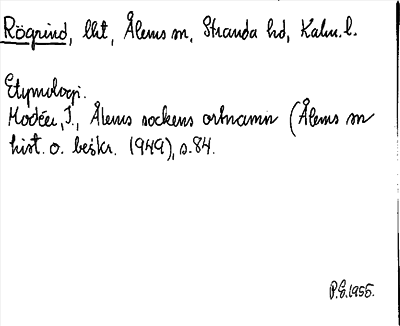 Rögrind, lht, Ålems sn, Stranda hd, Kalm. l.
Etymologi.
Modéer, I., Ålems sockens ortnamn (Ålems sn
hist. o. beskr. (1949), s. 84.
P.E. 1955.